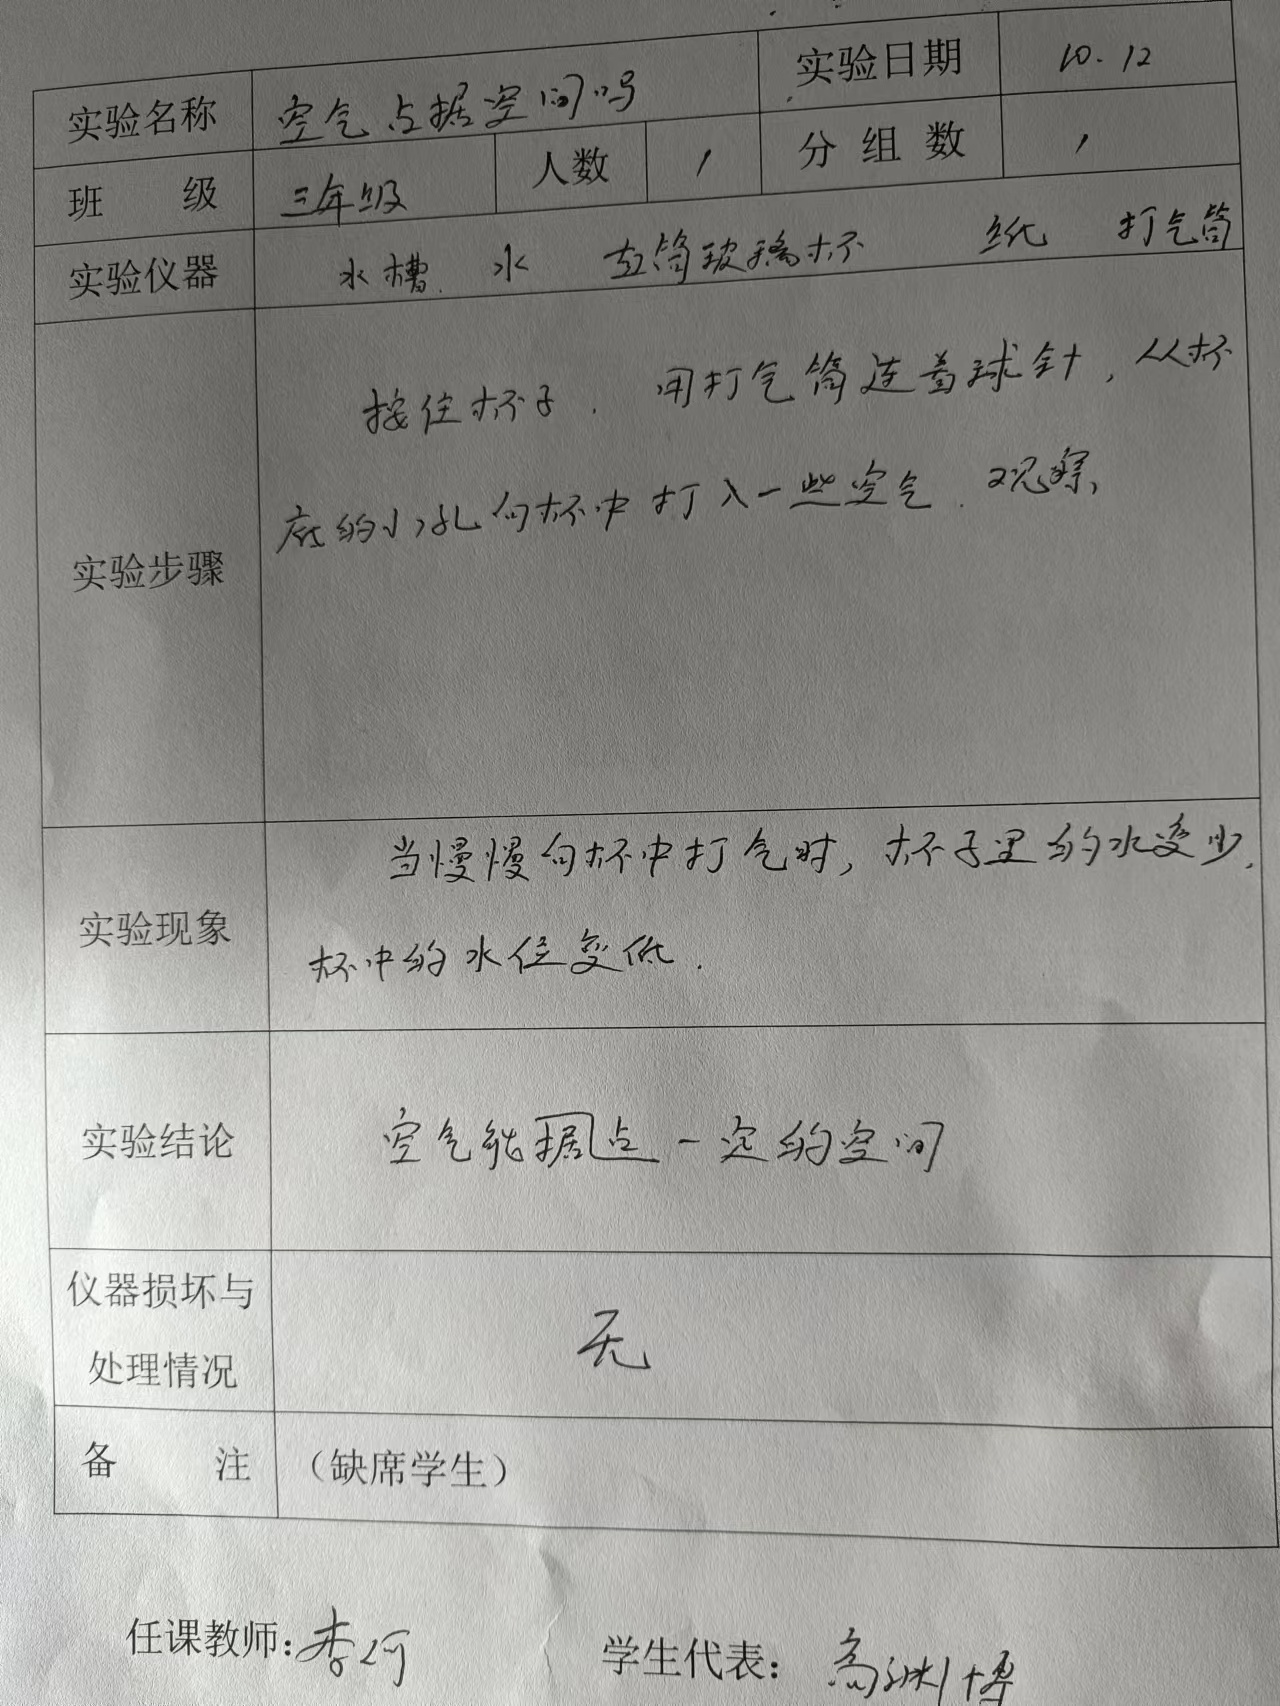 实验名称 空气占据空间吗 实验日期 10.12
班 级 三年级 人数 1 分组数 1
实验仪器 水槽. 水 直筒玻璃杯 纸 打气筒
实验步骤
按住杯子. 用打气筒连着球针, 从杯
底的小孔向杯中打入一些空气. 观察,
实验现象
当慢慢向杯中打气时, 杯子里的水变少,
杯中的水位变低.
实验结论 空气能据占一定的空间
仪器损坏与
处理情况 无
备 注 （缺席学生）
任课教师: 李何 学生代表: 高渊博